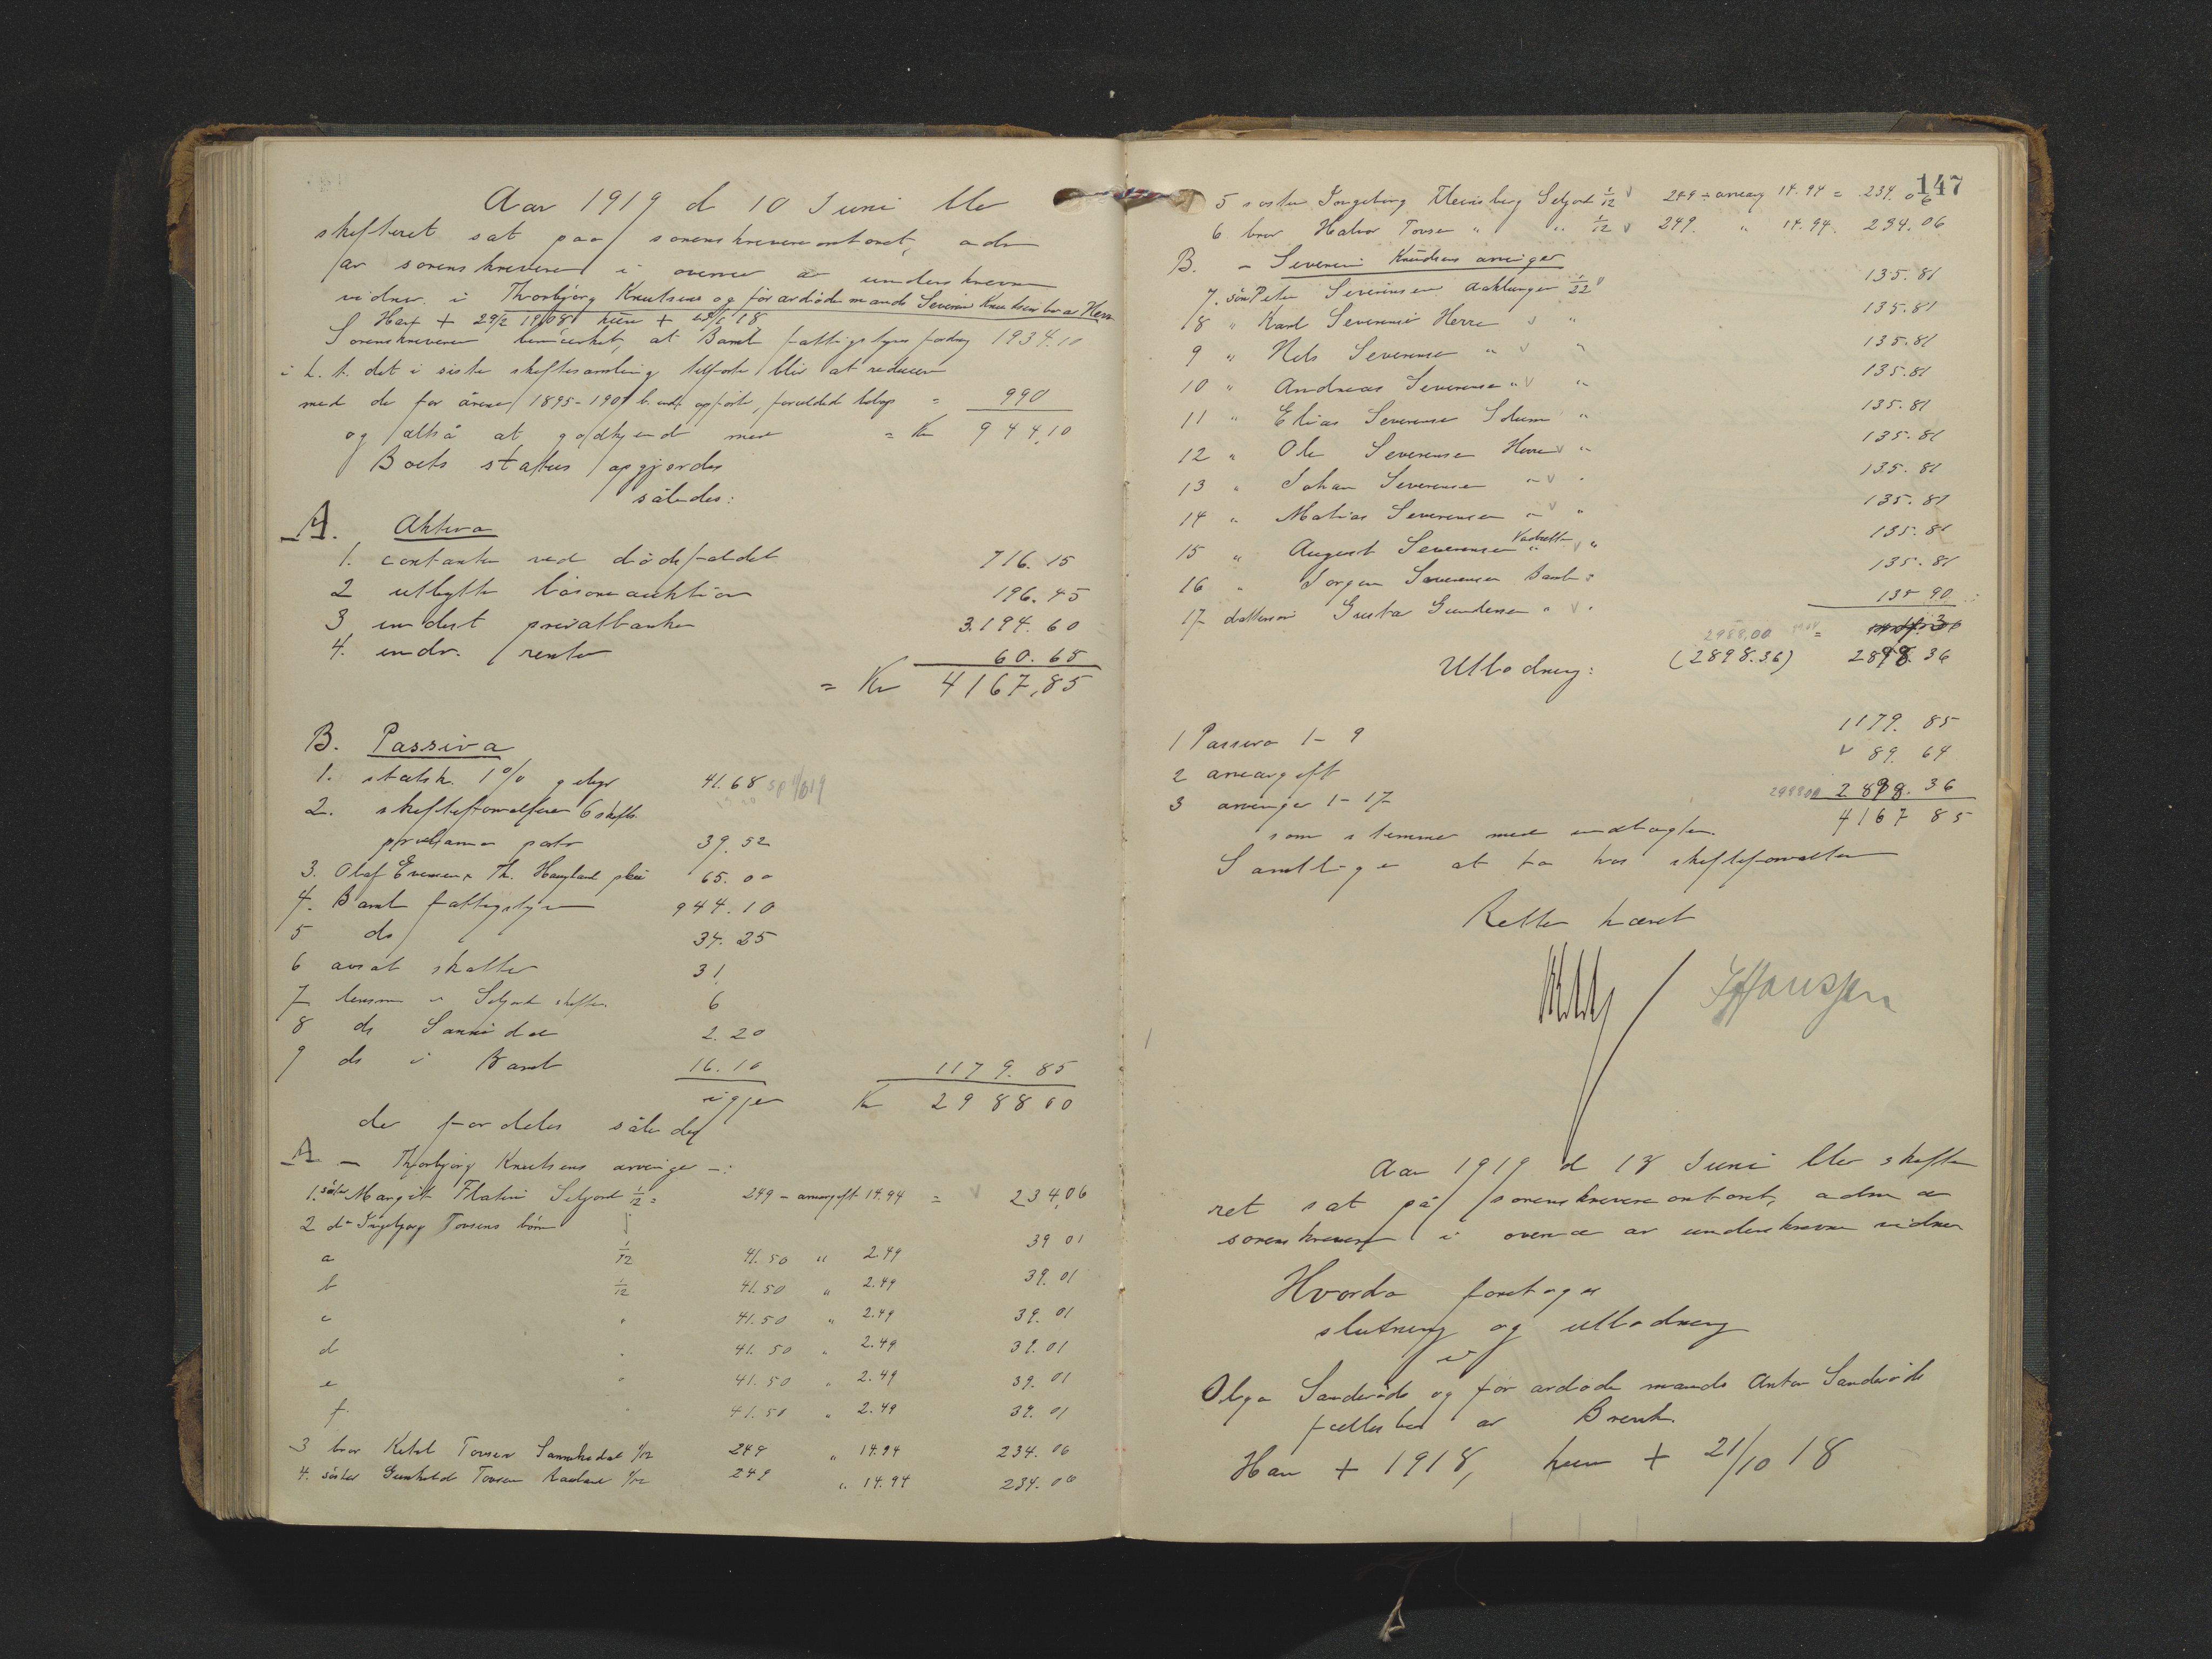 Aar 1919 d 10 Juni blev
skifteret sat paa sorenskriverkontoret, adm
av sorenskriveren i overvær av underskrevne
vidner i Thorbjørg Knutsens og før avdøde mands Severin Knutsens bo av Herre
Han + 29/2 1908 hun + 18
Sorenskriveren bemærket, at Bamle fattigstyres fordring 1934.10
i h. t. det i siste skiftesamling tilførte blir at reducere
med de for årene 1895-1901 opførte, forældede beløp = 990
og altså at godkjende med = Kr 944.10
Boets status opgjordes
således:
A. Aktiva
1. contanter ved dødsfaldet 716.15
2 utbytte løsøreauktion 196.45
3 indest privatbanken 3.194.60
4. indv. renter 60.65
= Kr 4167,85
B. Passiva
1. statsk. 1% gebyr 41.68
2. skifteforvalteren 6 skifts.
proklama porto 39.52
3. Olaf Evensen & Th. Haugland pleie 65.00
4. Bamle fattigstyre 944.10
5 do 34.25
6 avsat skatter 31
7 lensm i Seljord skiftes. 6
8 do Sannidal 2.20
9 do i Bamle 16.10 1179.85
igjen Kr 2988 00
der fordeles således
A - Thorbjørg Knutsens arvinger -:
1. søster Margit Flatin Seljord 1/12 = 249 - arveavgift 14.94 = 234,06
2 do Ingebjørg Tovsens børn
a 1/72 41.50 " 2.49 39 01
b 1/72 41.50 " 2.49 39.01
c " 41.50 " 2.49 39.01
d " 41.50 " 2.49 39.01
e " 41.50 " 2.49 39.01
f " 41.50 " 2.49 39.01
3 bror Ketil Tovsen Sannikedal 1/12 249 " 14.94 234.06
4. søster Gunhild Tovsen 1/12 249 " 14.94 234.06
147
5 søster Ingeborg Seljord 1/12 249 ÷ arveavg 14.94 = 234.06
6. bror Halvor Tovsen " " 1/12 249. " 14.94. 234.06
B. - Severin Knudsens arvinger
7. søn Peter Severinsen 1/22 135.81
8 " Karl Severinsen Herre " 135.81
9 " Nils Severinsen " " 135.81
10 " Andreas Severinsen " " 135.81
11 " Elias Severinsen Solum " 135.81
12 " Ole Severinsen Herre " 135.81
13 " Johan Severinsen " " 135.81
14 " Matias Severinsen " " 135.81
15 " August Severinsen " 135.81
16 " Jørgen Severinsen Bamle " 135.81
17 Gusta Gundersen " " 135 90
2988.00 =
(2898.36) 2898.36
Utlodning:
1 Passiva 1-9 1179.85
2 arveavgift 89.64
3 arvinger 1-17 2988.00 2898.36
4167 85
som stemmer med indtægten.
Samtlige at ta hos skifteforvalteren
Retten hævet
Hanssen
Aar 1919 d 18 Juni blev skifte
ret sat på sorenskriverkontoret, adm av
sorenskriveren i overvær av underskrevne vidner
Hvorda foretoges
slutning og utlodning
i
Olga Sanderøds og før avdøde mands Anton Sanderøds
fællesbo av Brevik.
Han + 1918, hun + 21/10 18